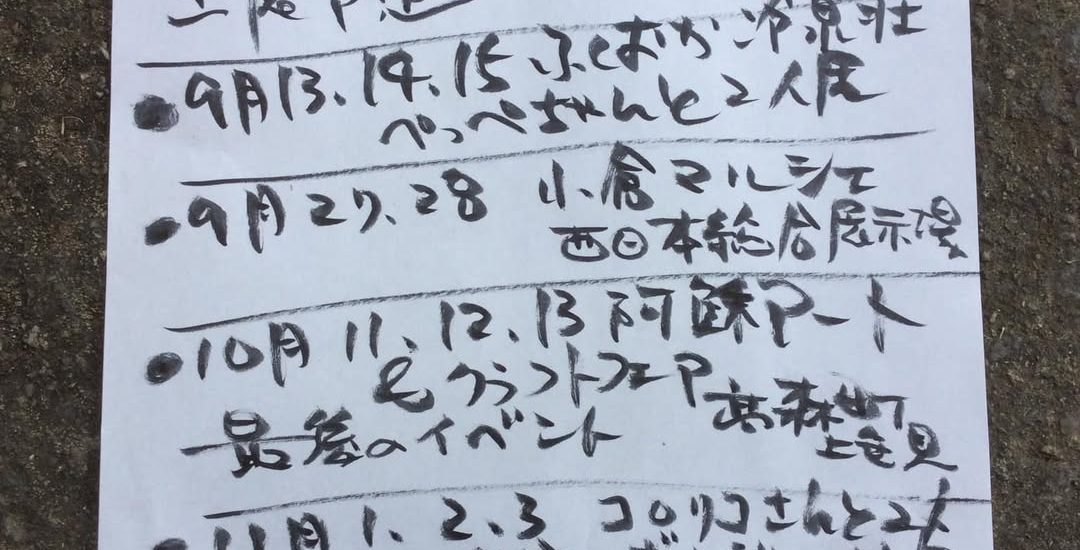 ●9月13、14、15 ふくおか 冷泉荘
ぺっぺちゃんと2人展
●9月27、28 小倉マルシェ
西日本総合展示場
●10月11、12、13 阿蘇アート
&クラフトフェア 高森町
最後のイベント 上色見
11月1、2、3 コロリコさんと2人